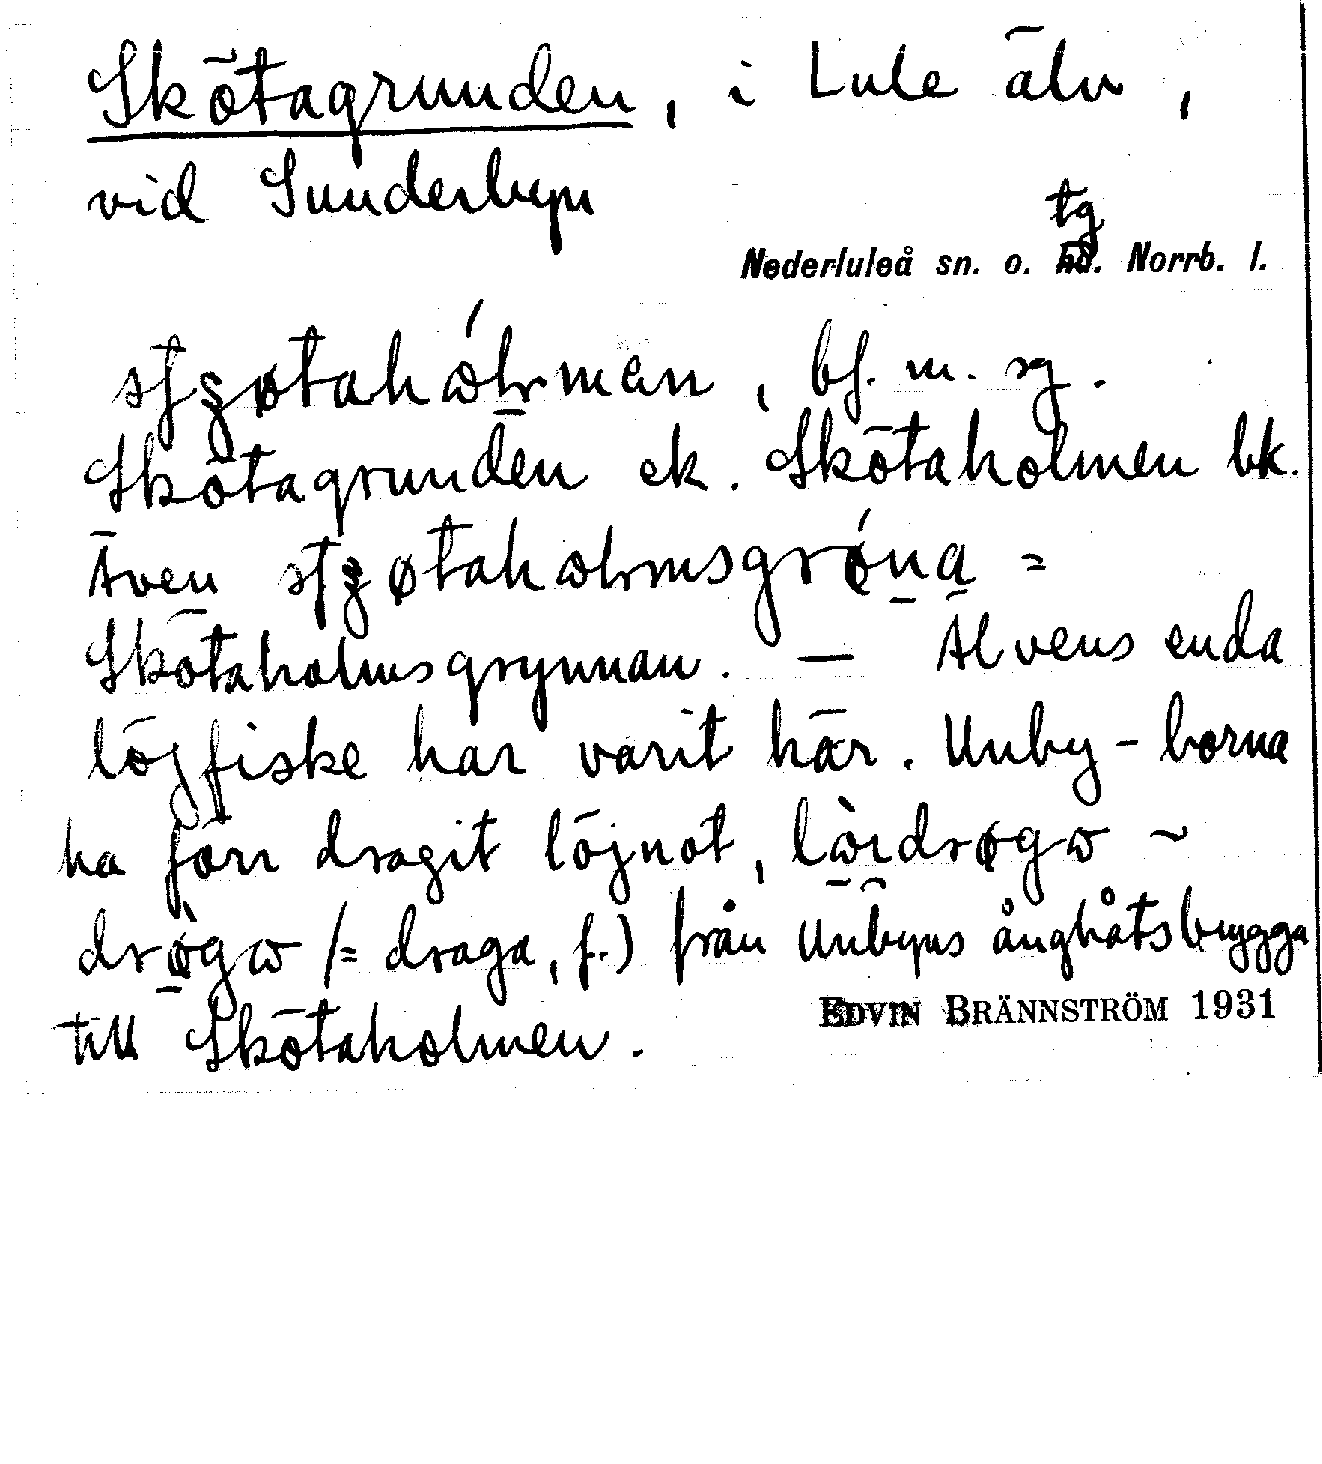 Skötagrunden, i Lule älv,
vid Sunderbyn
tg
Nederluleå sn. o. hd. Norrb. l.
bf. m. sg.
Skötagrunden ek. Skötaholmen bk.
Även =
Skötaholmsgrynnan. — Älvens enda
löjfiske har varit här. Unby-borna
ha förr dragit löjnot, ~
(= draga, f.) från Unbyns ångbåtsbrygga
till Skötaholmen.
EDVIN BRÄNNSTRÖM 1931